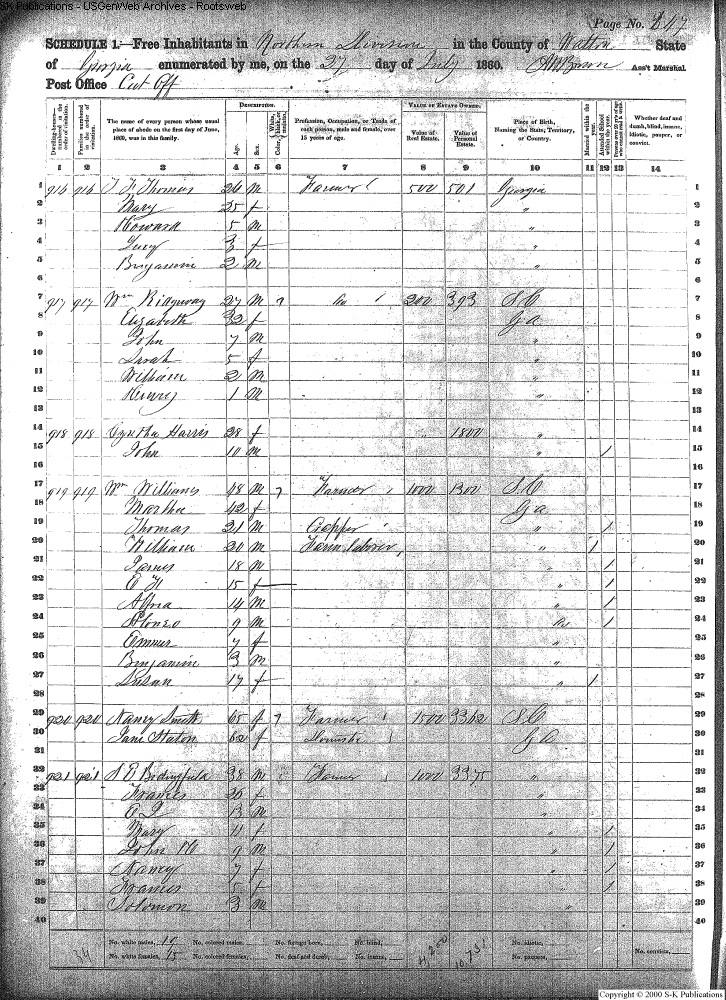 S-K Publications - USGenWeb Archives - Rootsweb
Page No.
SCHEDULE 1.—Free Inhabitants in Northern Division in the County of Walton State
of Georgia enumerated by me, on the 27 day of July 1860. Ass't Marshal
Post Office Cut Off
Dwelling-houses—numbered in the order of visitation.
Families numbered in the order of visitation.
The name of every person whose usual place of abode on the first day of June, 1860, was in this family.
DESCRIPTION.
Age.
Sex.
Profession, Occupation, or Trade of each person, male and female, over 15 years of age.
VALUE OF ESTATE OWNED.
Value of Real Estate.
Value of Personal Estate.
Place of Birth, Naming the State, Territory, or Country.
Married within the year.
Attended School within the year.
Whether deaf and dumb, blind, insane, idiotic, pauper, or convict.
1 2 3 4 5 6 7 8 9 10 11 12 13 14
1 916 916 Thomas 26 m Farmer 500 501 Georgia 1
2 Mary 25 f " 2
3 Howard 5 m " 3
4 Lucy 3 f " 4
5 Benjamin 2 m " 5
6 6
7 917 917 Wm Ridgeway 27 m 200 393 S C 7
8 Elizabeth 32 f Ga 8
9 John 7 m " 9
10 Sarah 5 f " 10
11 William 2 m " 11
12 Henry 1 m " 12
13 13
14 918 918 Cyntha Harris 28 f 1800 " 14
15 John 10 m " / 15
16 16
17 919 919 Wm Williams 48 m Farmer 1000 1300 S C 17
18 Martha 42 f Ga 18
19 Thomas 21 m " / 19
20 William 20 m Farm laborer " / 20
21 James 18 m / 21
22 15 f " / 22
23 14 m " / 23
24 Alonzo 9 m 24
25 7 f " 25
26 Benjamin 3 m " 26
27 Susan 17 f " / 27
28 28
29 920 920 Nancy Smith 65 f Farmer 1500 3362 S C 29
30 Jane Staton 62 f Domestic 30
31 31
32 921 921 38 m Farmer 1000 3375 " 32
33 Frances f " 33
34 13 m " 34
35 Mary 11 f " / 35
36 John 9 m " / 36
37 Nancy 7 f " / 37
38 Frances 5 f " / 38
39 Solomon 3 m " 39
40 40
No. white males, 19 No. colored males, No. foreign born, No. blind, No. idiotic,
No. white females, 15 No. colored females, No. deaf and dumb, No. insane, No. paupers, No. convicts,
34
Copyright © 2000 S-K Publications